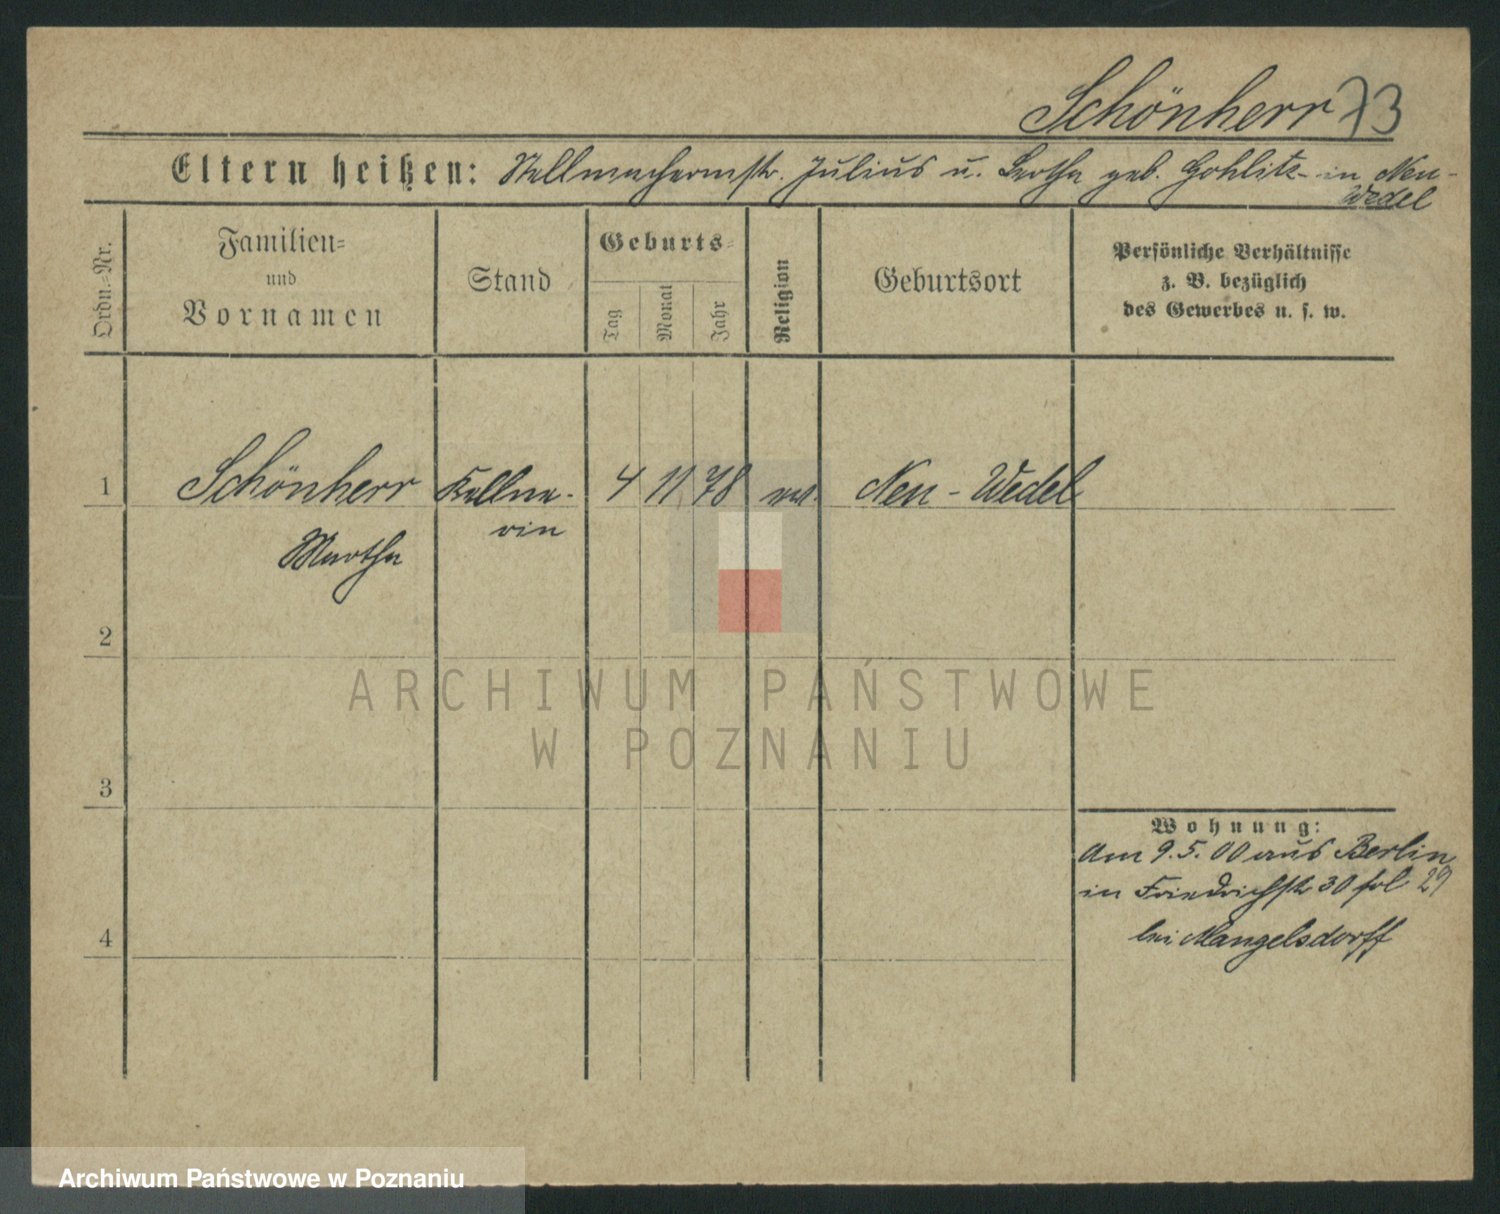 Schönherr 73
Eltern heißen: Stellmachermstr. Julius u. Bertha geb. Gohlitz in Neu-
Wedel
Ordn.-Nr.
Familien-
und
Vornamen
Stand
Geburts-
Tag
Monat
Jahr
Religion
Geburtsort
Persönliche Verhältnisse
z. B. bezüglich
des Gewerbes u. s. w.
1 Schönherr Kellne- 4 11 78 ev. Neu-Wedel
rin
Martha
2
3
4
Wohnung:
Am 9.5.00 aus Berlin
in Friedrichstr 30 fol 29
bei Mangelsdorff
ARCHIWUM PAŃSTWOWE
W POZNANIU
Archiwum Państwowe w Poznaniu